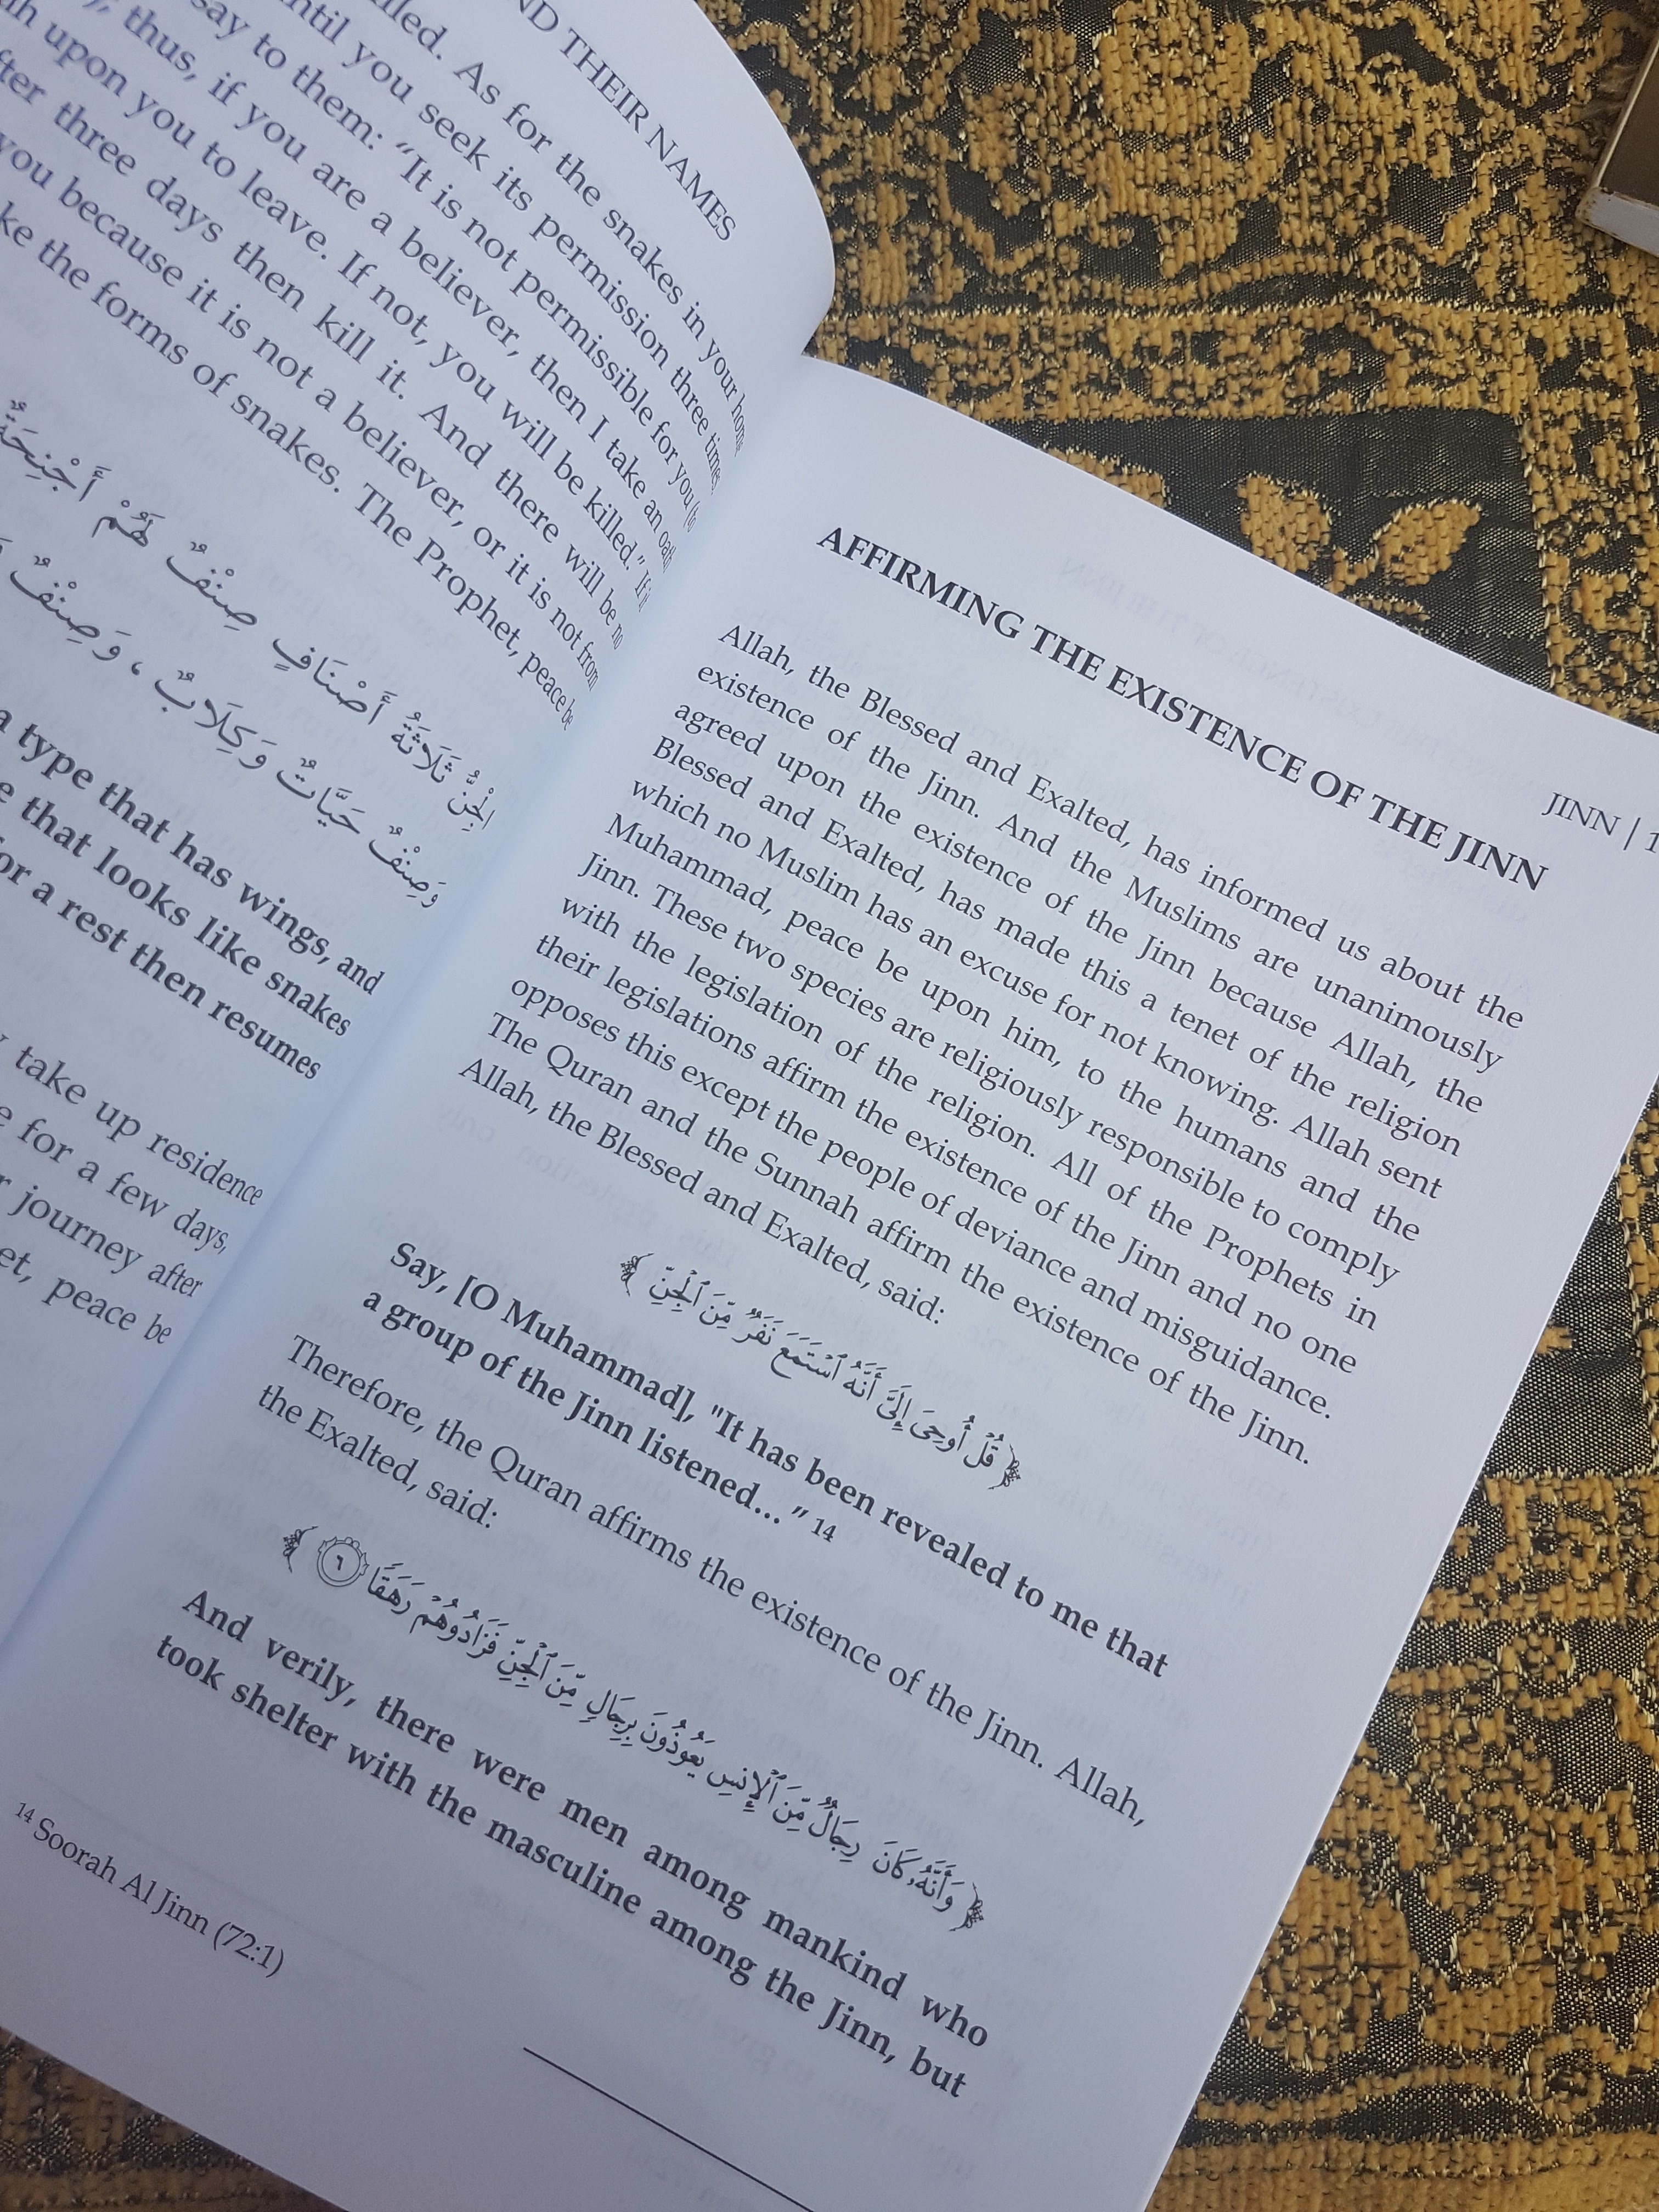 ND THEIR NAMES
illed. As for the snakes in your home
until you seek its permission three times
say to them: “It is not permissible for you (to
thus, if you are a believer, then I take an oath
upon you to leave. If not, you will be killed.” If it
three days then kill it. And there will be no
you because it is not a believer, or it is not from
the forms of snakes. The Prophet, peace be
الْجِنُّ ثَلَاثَةُ أَصْنَافٍ صِنْفٌ لَهُمْ أَجْنِحَةٌ
وَصِنْفٌ حَيَّاتٌ وَكِلَابٌ ، وَصِنْفٌ
a type that has wings, and
that looks like snakes
for a rest then resumes
take up residence
for a few days,
journey after
peace be
JINN | 1
AFFIRMING THE EXISTENCE OF THE JINN
Allah, the Blessed and Exalted, has informed us about the
existence of the Jinn. And the Muslims are unanimously
agreed upon the existence of the Jinn because Allah, the
Blessed and Exalted, has made this a tenet of the religion
which no Muslim has an excuse for not knowing. Allah sent
Muhammad, peace be upon him, to the humans and the
Jinn. These two species are religiously responsible to comply
with the legislation of the religion. All of the Prophets in
their legislations affirm the existence of the Jinn and no one
opposes this except the people of deviance and misguidance.
The Quran and the Sunnah affirm the existence of the Jinn.
Allah, the Blessed and Exalted, said:
﴿ قُلْ أُوحِىَ إِلَىَّ أَنَّهُ ٱسْتَمَعَ نَفَرٌ مِّنَ ٱلْجِنِّ ﴾
Say, [O Muhammad], "It has been revealed to me that
a group of the Jinn listened… ” 14
Therefore, the Quran affirms the existence of the Jinn. Allah,
the Exalted, said:
﴿ وَأَنَّهُۥ كَانَ رِجَالٌ مِّنَ ٱلْإِنسِ يَعُوذُونَ بِرِجَالٍ مِّنَ ٱلْجِنِّ فَزَادُوهُمْ رَهَقًا ٦ ﴾
And verily, there were men among mankind who
took shelter with the masculine among the Jinn, but
14 Soorah Al Jinn (72:1)